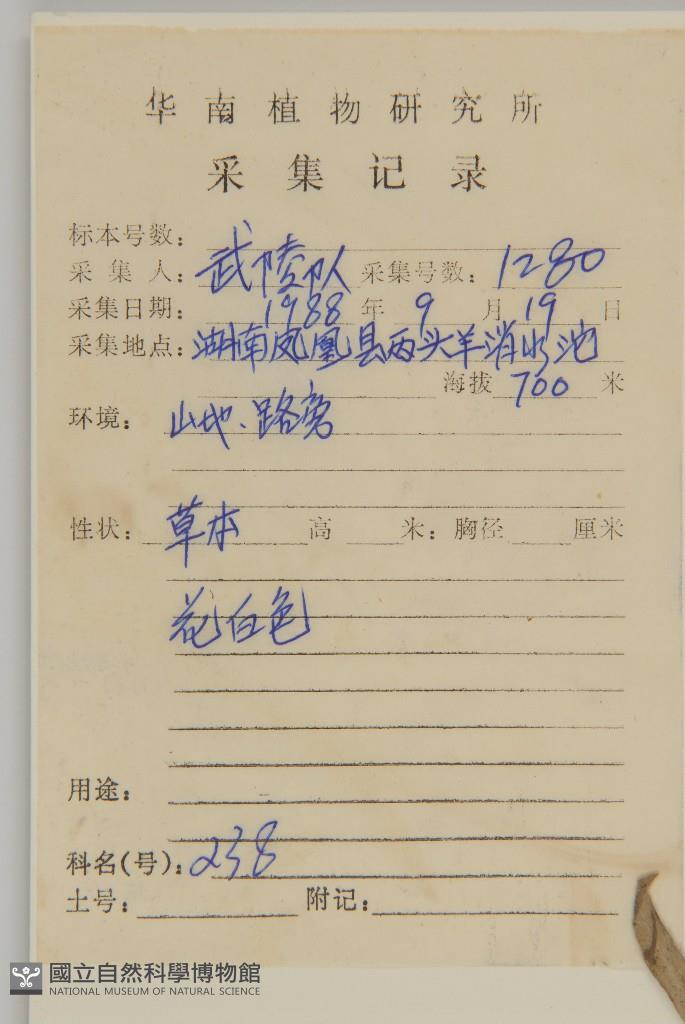 华南植物研究所
采集记录
标本号数：
采集人：武陵队 采集号数：1280
采集日期：1988年9月19日
采集地点：湖南凤凰县两头羊消水池
海拔700米
环境：山地、路旁
性状：草本 高 米：胸径 厘米
花白色
用途：
科名(号)：238
土号： 附记：
國立自然科學博物館
NATIONAL MUSEUM OF NATURAL SCIENCE